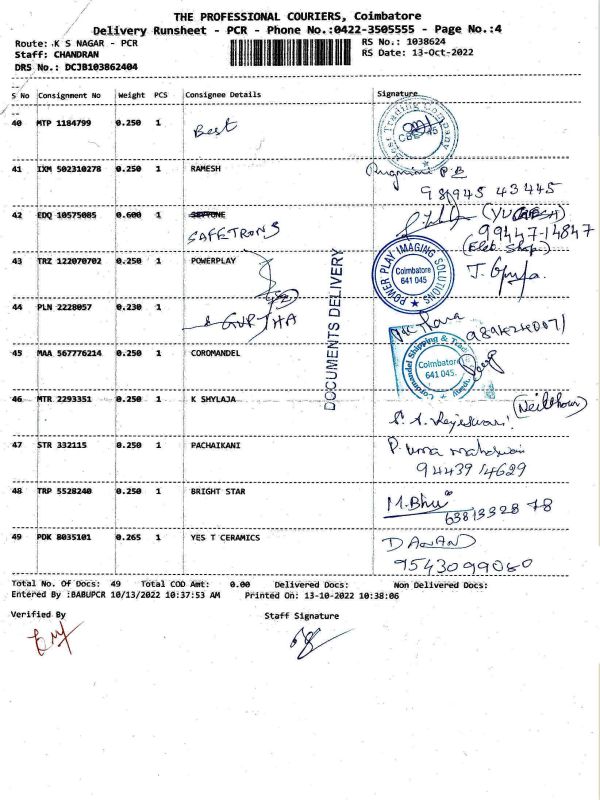 THE PROFESSIONAL COURIERS, Coimbatore
Delivery Runsheet - PCR - Phone No.:0422-3505555 - Page No.:4
Route: K S NAGAR - PCR
RS No.: 1038624
Staff: CHANDRAN
RS Date: 13-Oct-2022
DRS No.: DCJB103862404
S No Consignment No Weight PCS Consignee Details Signature
40 MTP 1184799 0.250 1 Best
41 IXM 502310278 0.250 1 RAMESH
98945 43445
42 EDQ 10575085 0.600 1
SAFETRONS
99447-14847
43 TRZ 122070702 0.250 1 POWERPLAY
POWER PLAY IMAGING SOLUTIONS
Coimbatore
641 045
44 PLN 2228057 0.230 1
DOCUMENTS DELIVERY
45 MAA 567776214 0.250 1 COROMANDEL
Coromandel Shipping &
Coimbatore
641 045.
46 MTR 2293351 0.250 1 K SHYLAJA
47 STR 332115 0.250 1 PACHAIKANI
P. uma
94439 14629
48 TRP 5528240 0.250 1 BRIGHT STAR
M.Bhu
63813328 78
49 PDK 8035101 0.265 1 YES T CERAMICS
DANAND
9543099080
Total No. Of Docs: 49 Total COD Amt: 0.00 Delivered Docs: Non Delivered Docs:
Entered By :BABUPCR 10/13/2022 10:37:53 AM Printed On: 13-10-2022 10:38:06
Verified By Staff Signature